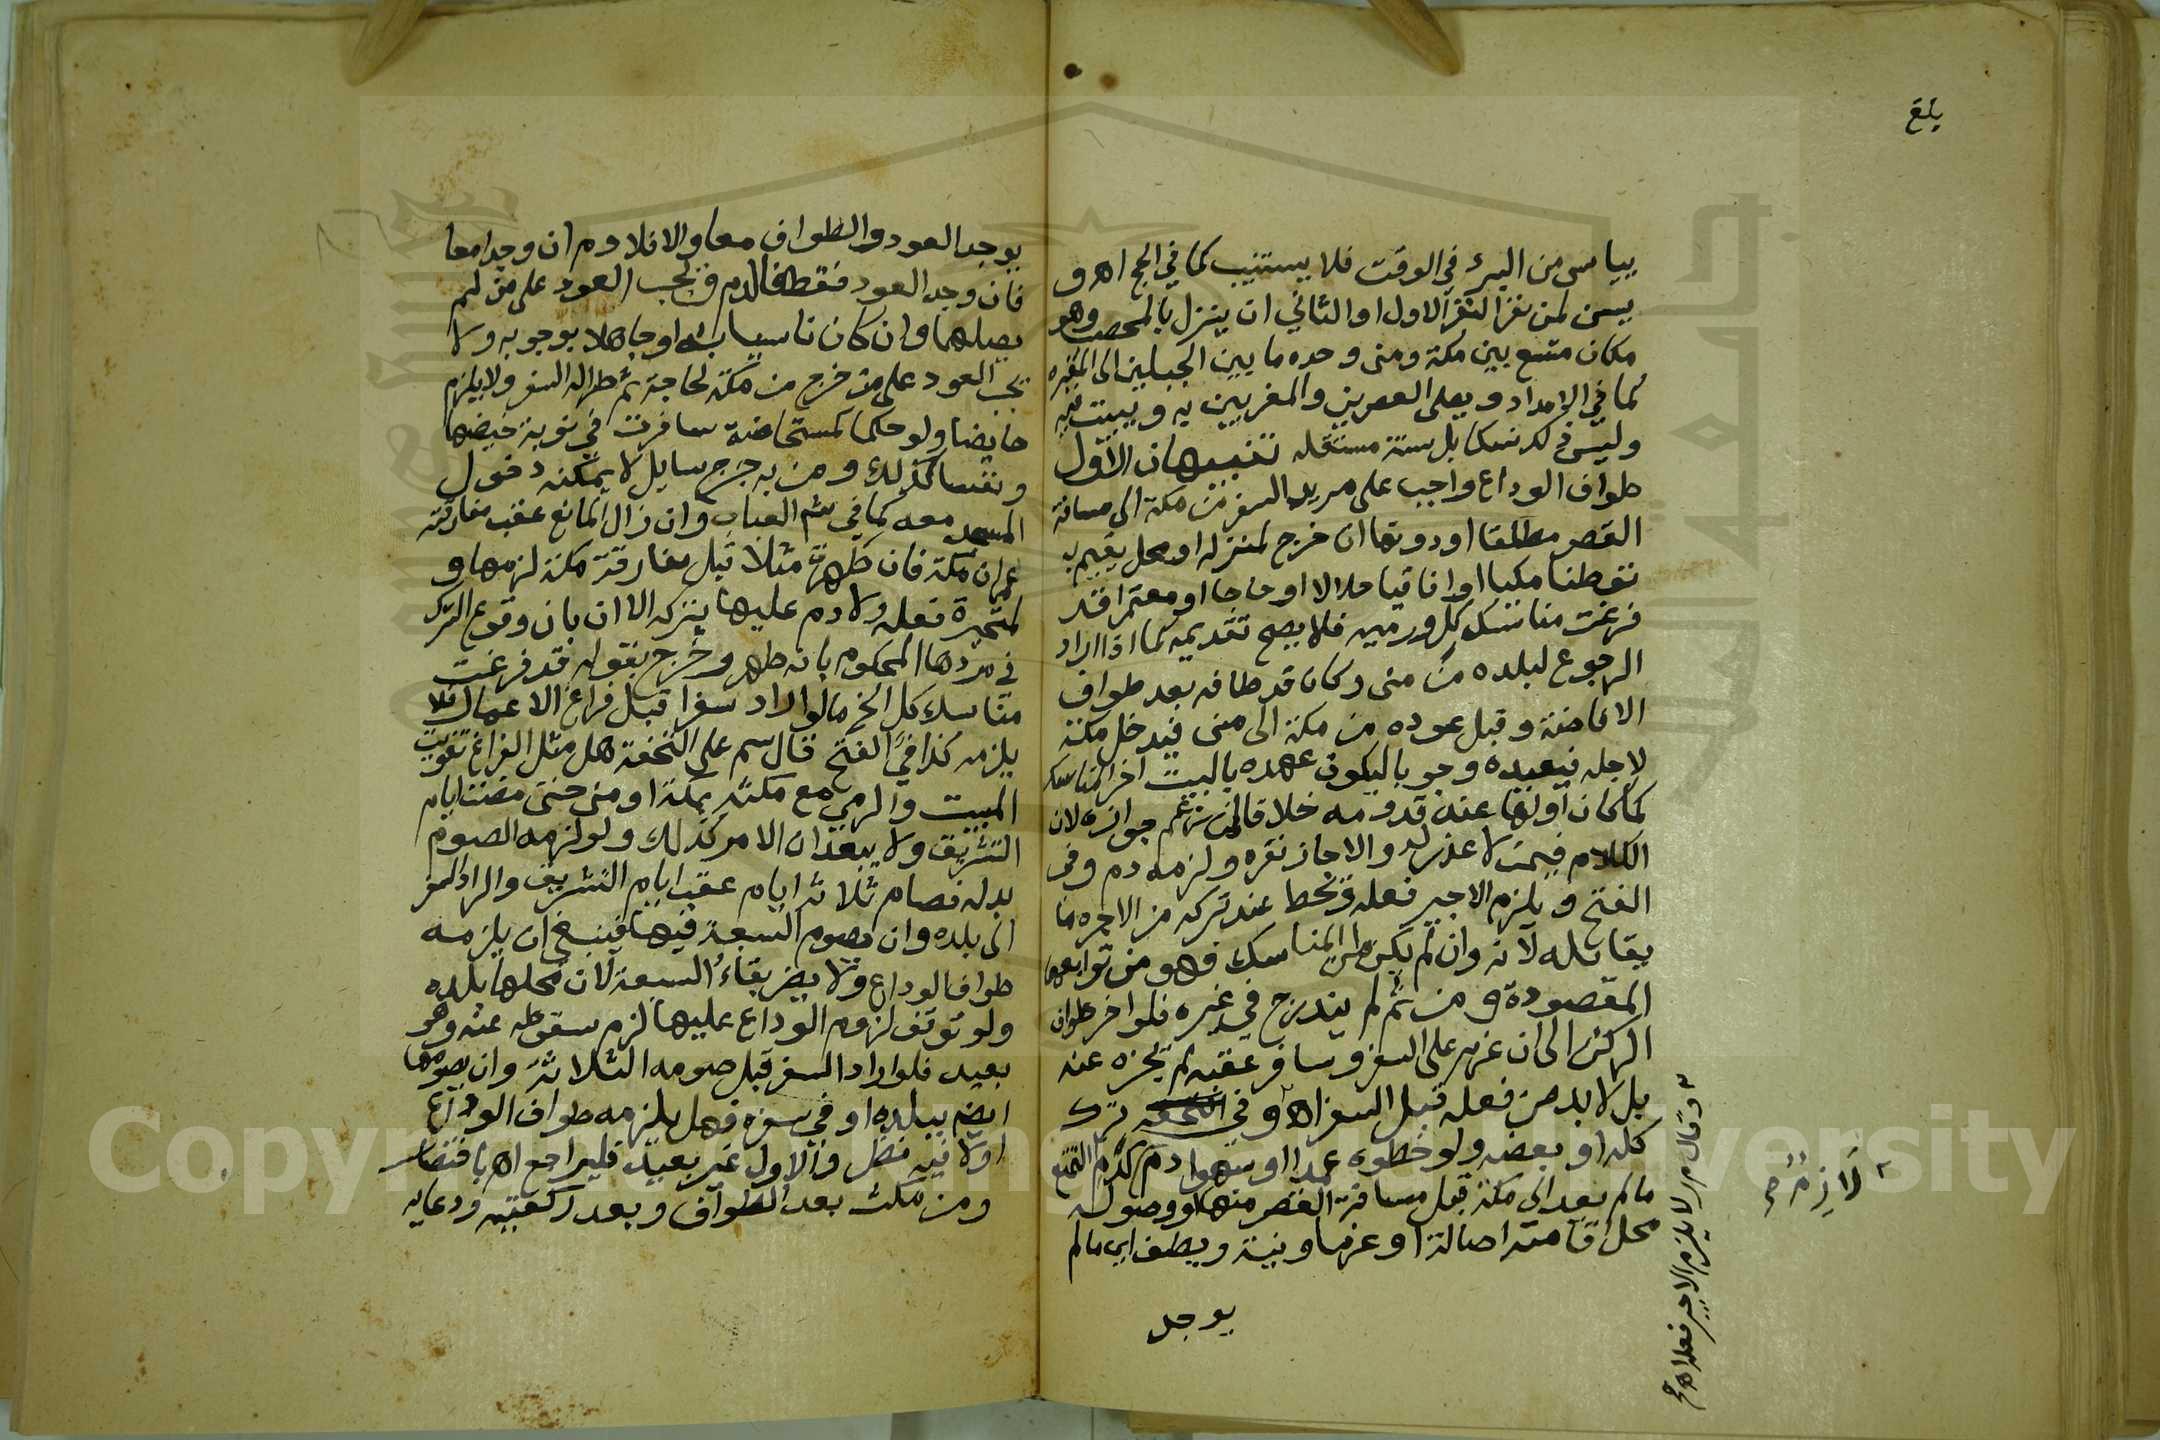 بلغ
ييأس من البرء في الوقت فلا يستنيب كما في الحج اهـ و
يسن لمن نفر النفر الاول او الثاني ان ينزل بالمحصب وهو
مكان متسع بين مكة ومنى وحده ما بين الجبلين الى المقبره
كما في الامداد ويصلى العصرين والمغربين به ويبيت به
وليس ذلك نسكا بل سنة مستقله تنبيهان الاول
طواف الوداع واجب على مريد السفر من مكة الى مسافة
القصر مطلقا او دونها ان خرج لمنزله او محل يقيم به
توطنا مكيا او افاقيا حلالا او حاجا او معتمرا قد
فرغت مناسك كل ورميه فلا يصح تقديمه كما اذا اراد
الرجوع لبلده من منى وكان قد طافه بعد طواف
الافاضة وقبل عوده من مكة الى منى فيدخل مكة
لاجله فيعيده وجوبا ليكون عهده بالبيت اخر المناسك
كما كان اولها عند قدومه خلافا لمن زعم جوازه لان
الكلام فيمن لا عذر له والا جاز نفره ولزمه دم وفي
الفتح ويلزم الاجير فعله ويحط عند تركه من الاجره ما
يقابله لانه وان لم يكن من المناسك فهو من توابعها
المقصودة ومن ثم لم يندرج في غيره فلو اخر طواف
الركن الى ان عزم على السفر وسافر عقبه لم يجزه عنه
بل لا بد من فعله قبل السفر اهـ وفي ترك
كله او بعضه ولو خطوه عمدا او سهوا دم كدم التمتع
ما لم يعد الى مكة قبل مسافة القصر منها او وصوله
محل اقامته اصالة او عزما ونية ويطف اي ما لم
يوجد
وقال م ر لا يلزم الاجير فعله اهـ
لازم
يوجد العود والطواف معا والا فلا دم ان وجدا معا
فان وجد العود فقط فالدم ويجب العود على من لم
يصلهما وان كان ناسيا له او جاهلا بوجوبه ولا
يجب العود على من خرج من مكة لحاجة ثم طرا له السفر ولا يلزم
حايضا ولو حكما كمستحاضة سافرت في نوبة حيضها
ونفسا كذلك ومن به جرح سايل لا يمكنه دخول
المسجد معه كما في شم العباب وان زال المانع عقب مفارقته
عمران مكة فان طهرت مثلا قبل مفارقة مكة لزمها و
لمتحيرة فعله ولا دم عليها بتركه الا ان بان وقوع الترك
في مردها المحكوم بانه طهر وخرج بقوله قد فرغت
مناسك كل الخ ما لو اراد سفرا قبل فراغ الاعمال فلا
يلزمه كذا في الفتح قال سم على التحفة هل مثل الفراغ تفويت
المبيت والرمي مع مكثه بمكة او منى حتى مضت ايام
التشريق ولا يبعد ان الامر كذلك ولو لزمه الصوم
بدله فصام ثلاثة ايام عقب ايام التشريق واراد السفر
الى بلده وان يصوم السبعة فيها فينبغي ان يلزمه
طواف الوداع ولا يضر بقاء السبعة لان محلها بلده
ولو توقف لزوم الوداع عليها لزم سقوطه عنه وهو
بعيد فلو اراد السفر قبل صومه الثلاثة وان يصومها
ايض ببلده او في سفره فهل يلزمه طواف الوداع
او لا فيه نظر والاول غير بعيد فليراجع اهـ باختصار
ومن مكث بعد الطواف وبعد ركعتيه ودعايه